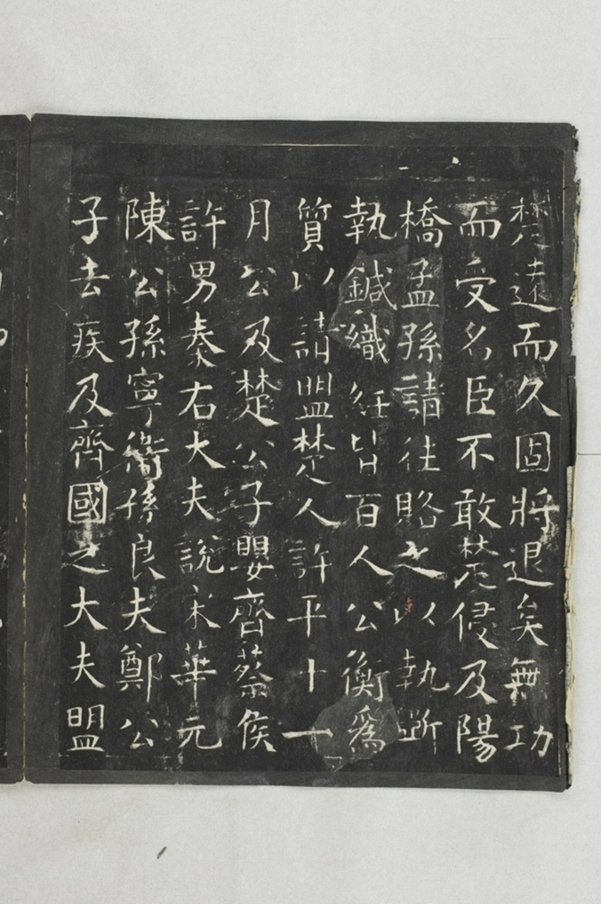 楚遠而久固將退矣無功
而受名臣不敢楚侵及陽
橋孟孫請往賂之以執斲
執鍼織紝皆百人公衡爲
質以請盟楚人許平十一
月公及楚公子嬰齊蔡侯
許男秦右大夫說宋華元
陳公孫寧衛孫良夫鄭公
子去疾及齊國之大夫盟